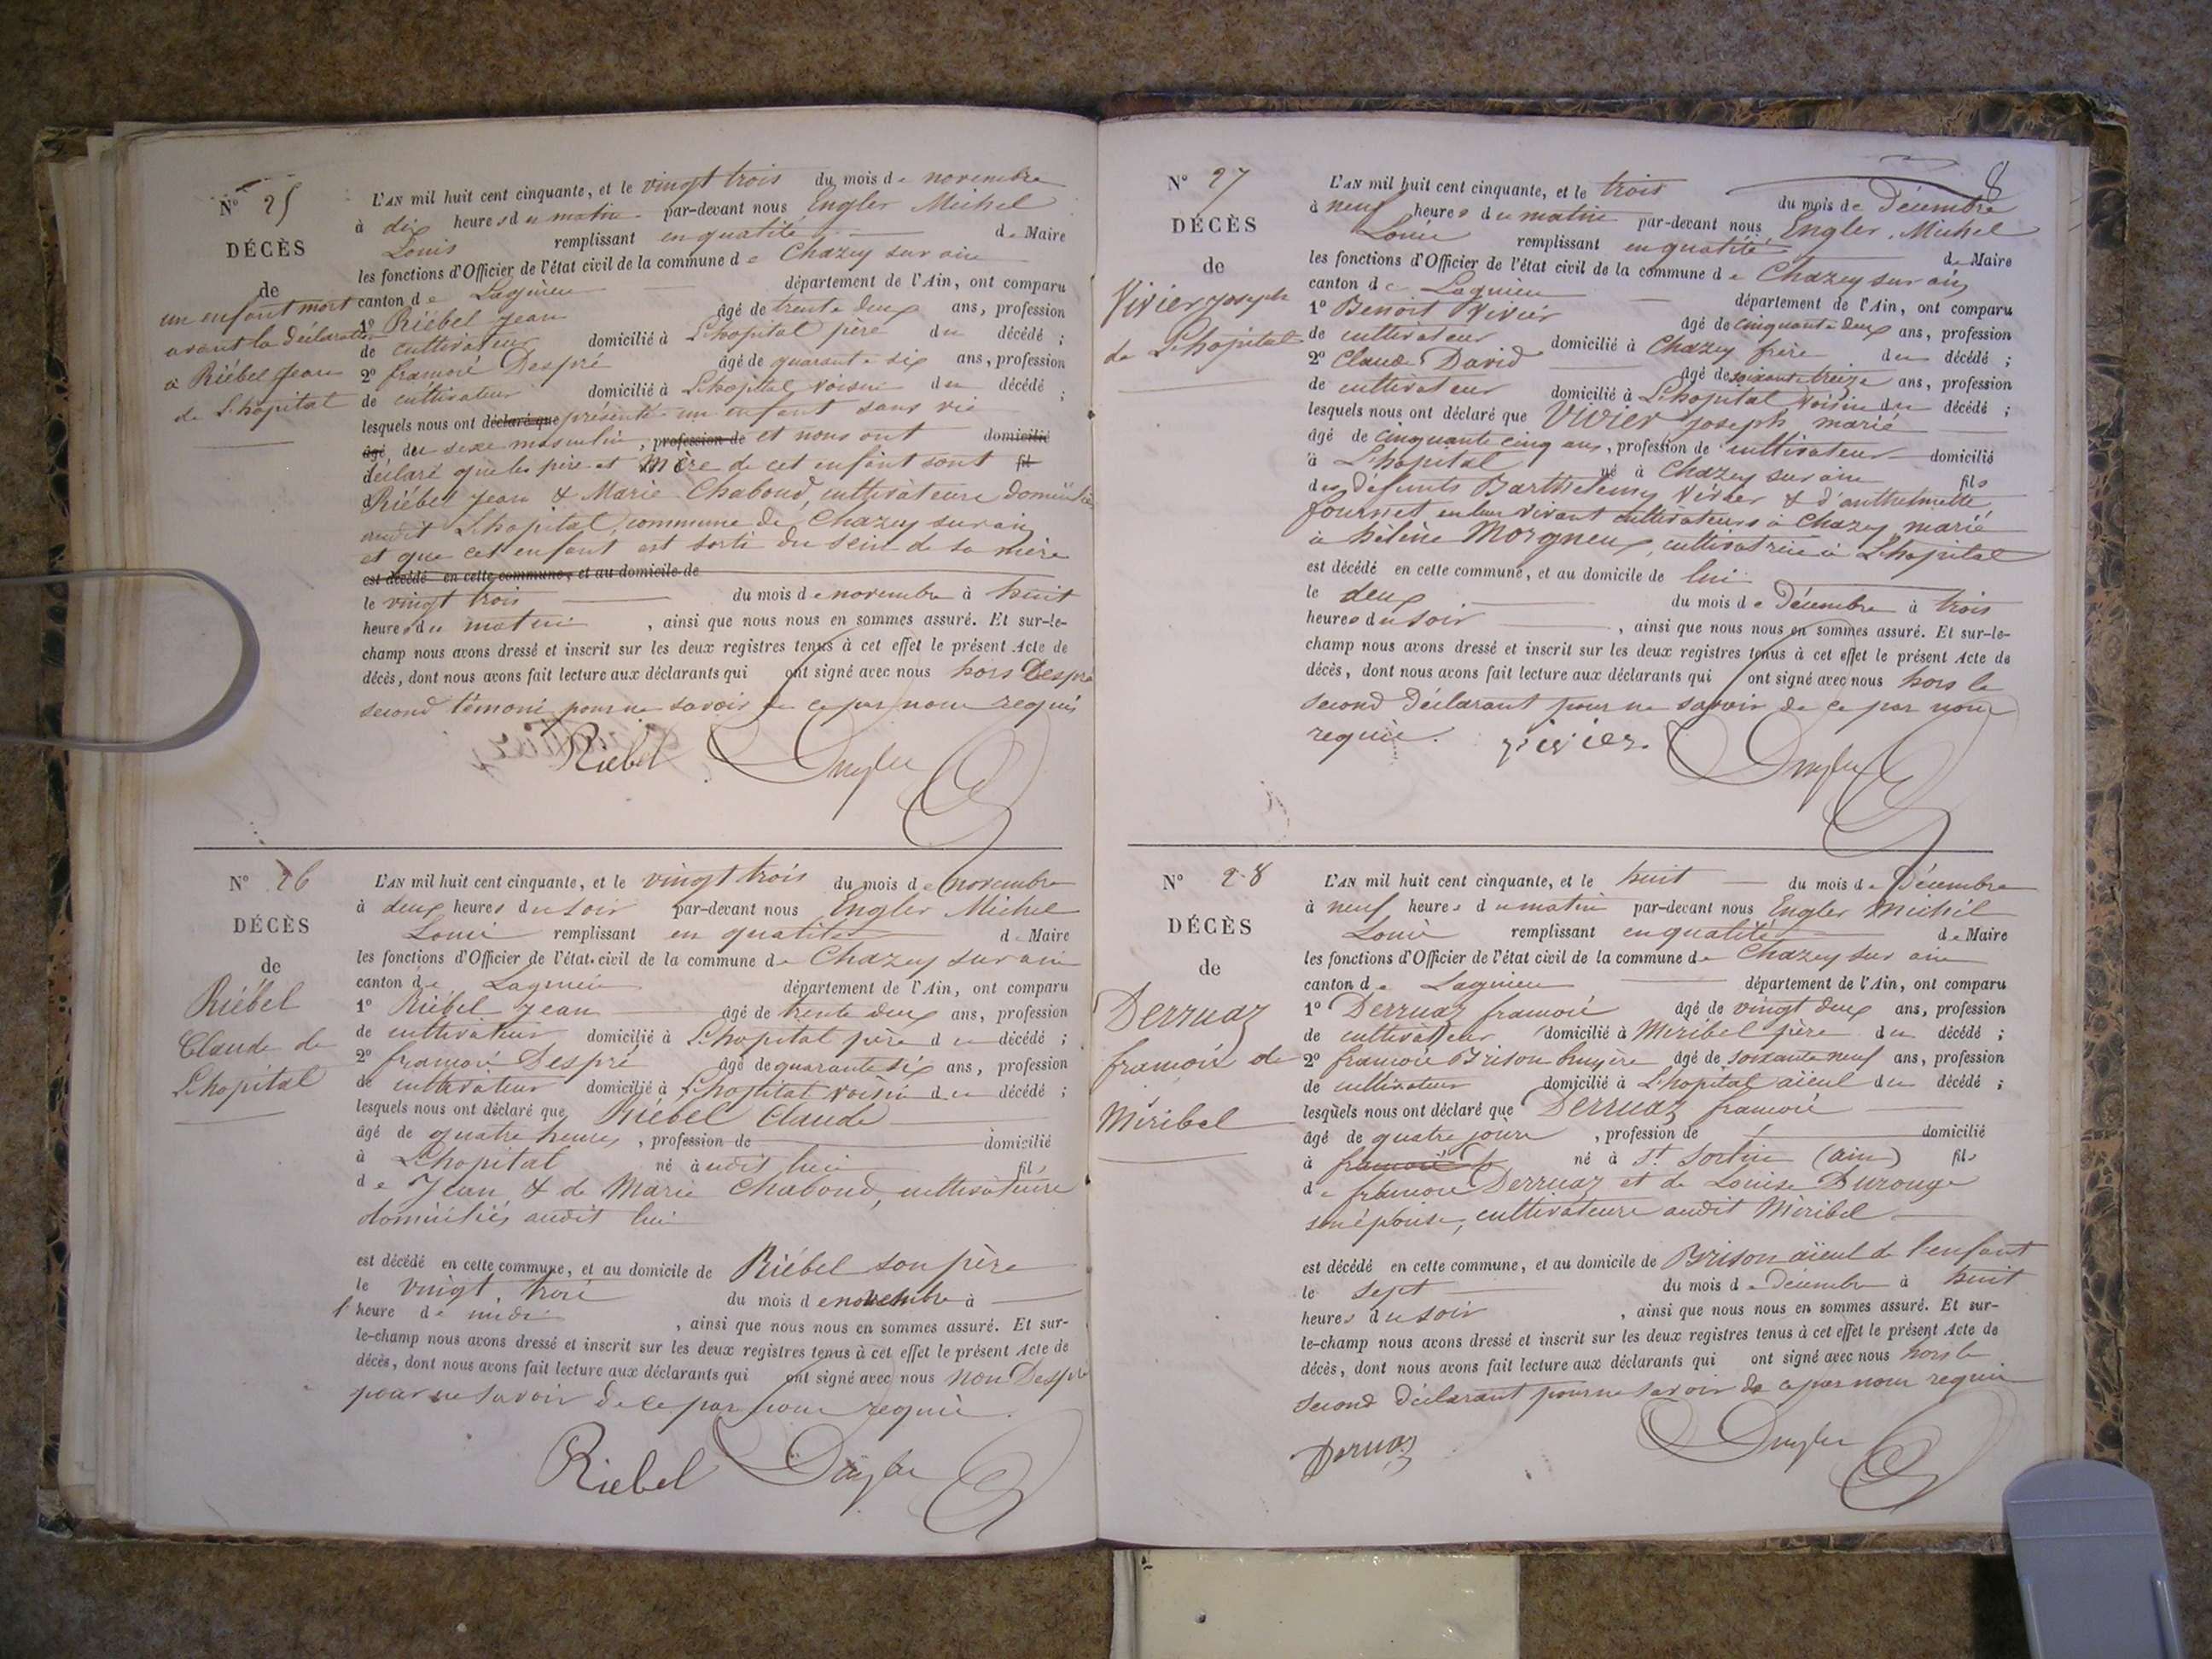 N° 25
DÉCÈS
de
un enfant mort
avant la déclaration
à Riébel Jean
de L'hopital
L'AN mil huit cent cinquante, et le vingt trois du mois de novembre
à dix heures du matin par-devant nous Engler Michel
Louis remplissant en qualité de Maire
les fonctions d'Officier de l'état civil de la commune de Chazey sur ain
canton de Lagnieu département de l'Ain, ont comparu
1° Riébel Jean âgé de trente deux ans, profession
de cultivateur domicilié à L'hopital père du décédé ;
2° françois Despré âgé de quarante six ans, profession
de cultivateur domicilié à L'hopital voisin du décédé ;
lesquels nous ont déclaré que présenté un enfant sans vie
âgé du sexe masculin, profession de et nous ont domicilié
déclaré que les père et Mère de cet enfant sont fil
Riébel Jean & Marie Chaboud, cultivateurs domiciliés
audit L'hopital, commune de Chazey sur ain
et que cet enfant est sorti du sein de sa mère
est décédé en cette commune, et au domicile de
le vingt trois du mois de novembre à huit
heures du matin, ainsi que nous nous en sommes assuré. Et sur-le-
champ nous avons dressé et inscrit sur les deux registres tenus à cet effet le présent Acte de
décès, dont nous avons fait lecture aux déclarants qui ont signé avec nous hors Despré
second témoin pour ne savoir de ce par nous requis
Riebel Engler
N° 26
DÉCÈS
de
Riébel
Claude de
L'hopital
L'AN mil huit cent cinquante, et le vingt trois du mois de novembre
à deux heures du soir par-devant nous Engler Michel
Louis remplissant en qualité de Maire
les fonctions d'Officier de l'état civil de la commune de Chazey sur ain
canton de Lagnieu département de l'Ain, ont comparu
1° Riébel Jean âgé de trente deux ans, profession
de cultivateur domicilié à L'hopital père du décédé ;
2° françois Despré âgé de quarante six ans, profession
de cultivateur domicilié à L'hopital voisin du décédé ;
lesquels nous ont déclaré que Riébel Claude
âgé de quatre heures, profession de domicilié
à L'hopital né à udit lieu fils
de Jean & de Marie Chaboud, cultivateurs
domiciliés audit lieu
est décédé en cette commune, et au domicile de Riébel son père
le vingt trois du mois de novembre à
l'heure de midi, ainsi que nous nous en sommes assuré. Et sur-
le-champ nous avons dressé et inscrit sur les deux registres tenus à cet effet le présent Acte de
décès, dont nous avons fait lecture aux déclarants qui ont signé avec nous non Despré
pour ne savoir de ce par nous requis.
Riebel Engler
8
N° 27
DÉCÈS
de
Vivier Joseph
de L'hopital
L'AN mil huit cent cinquante, et le trois du mois de Décembre
à neuf heures du matin par-devant nous Engler Michel
Louis remplissant en qualité de Maire
les fonctions d'Officier de l'état civil de la commune de Chazey sur ain
canton de Lagnieu département de l'Ain, ont comparu
1° Benoit Vivier âgé de cinquante deux ans, profession
de cultivateur domicilié à Chazey frère du décédé ;
2° Claude David âgé de soixante treize ans, profession
de cultivateur domicilié à L'hopital voisin du décédé ;
lesquels nous ont déclaré que Vivier Joseph marié
âgé de cinquante cinq ans, profession de cultivateur domicilié
à L'hopital né à Chazey sur ain fils
des défunts Barthelemy Vivier & d'anthelmette
fournet en leur vivant cultivateurs à Chazey marié
à hélène Morgneux, cultivatrice à L'hopital
est décédé en cette commune, et au domicile de lui
le deux du mois de Décembre à trois
heures du soir, ainsi que nous nous en sommes assuré. Et sur-le-
champ nous avons dressé et inscrit sur les deux registres tenus à cet effet le présent Acte de
décès, dont nous avons fait lecture aux déclarants qui ont signé avec nous hors le
second déclarant pour ne savoir de ce par nous
requis. vivier. Engler
N° 28
DÉCÈS
de
Derruaz
françois de
Méribel
L'AN mil huit cent cinquante, et le huit du mois de Décembre
à neuf heures du matin par-devant nous Engler Michel
Louis remplissant en qualité de Maire
les fonctions d'Officier de l'état civil de la commune de Chazey sur ain
canton de Lagnieu département de l'Ain, ont comparu
1° Derruaz françois âgé de vingt deux ans, profession
de cultivateur domicilié à Meribel père du décédé ;
2° françois Brison bruyère âgé de soixante neuf ans, profession
de cultivateur domicilié à L'hopital aïeul du décédé ;
lesquels nous ont déclaré que Derruaz françois
âgé de quatre jours, profession de domicilié
à né à St Sorlin (ain) fils
de françois Derruaz et de Louise Durouge
son épouse, cultivateurs audit Méribel
est décédé en cette commune, et au domicile de Brison aïeul de l'enfant
le sept du mois de Décembre à huit
heures du soir, ainsi que nous nous en sommes assuré. Et sur-
le-champ nous avons dressé et inscrit sur les deux registres tenus à cet effet le présent Acte de
décès, dont nous avons fait lecture aux déclarants qui ont signé avec nous hors le
second déclarant pour ne savoir de ce par nous requis
Deruaz Engler